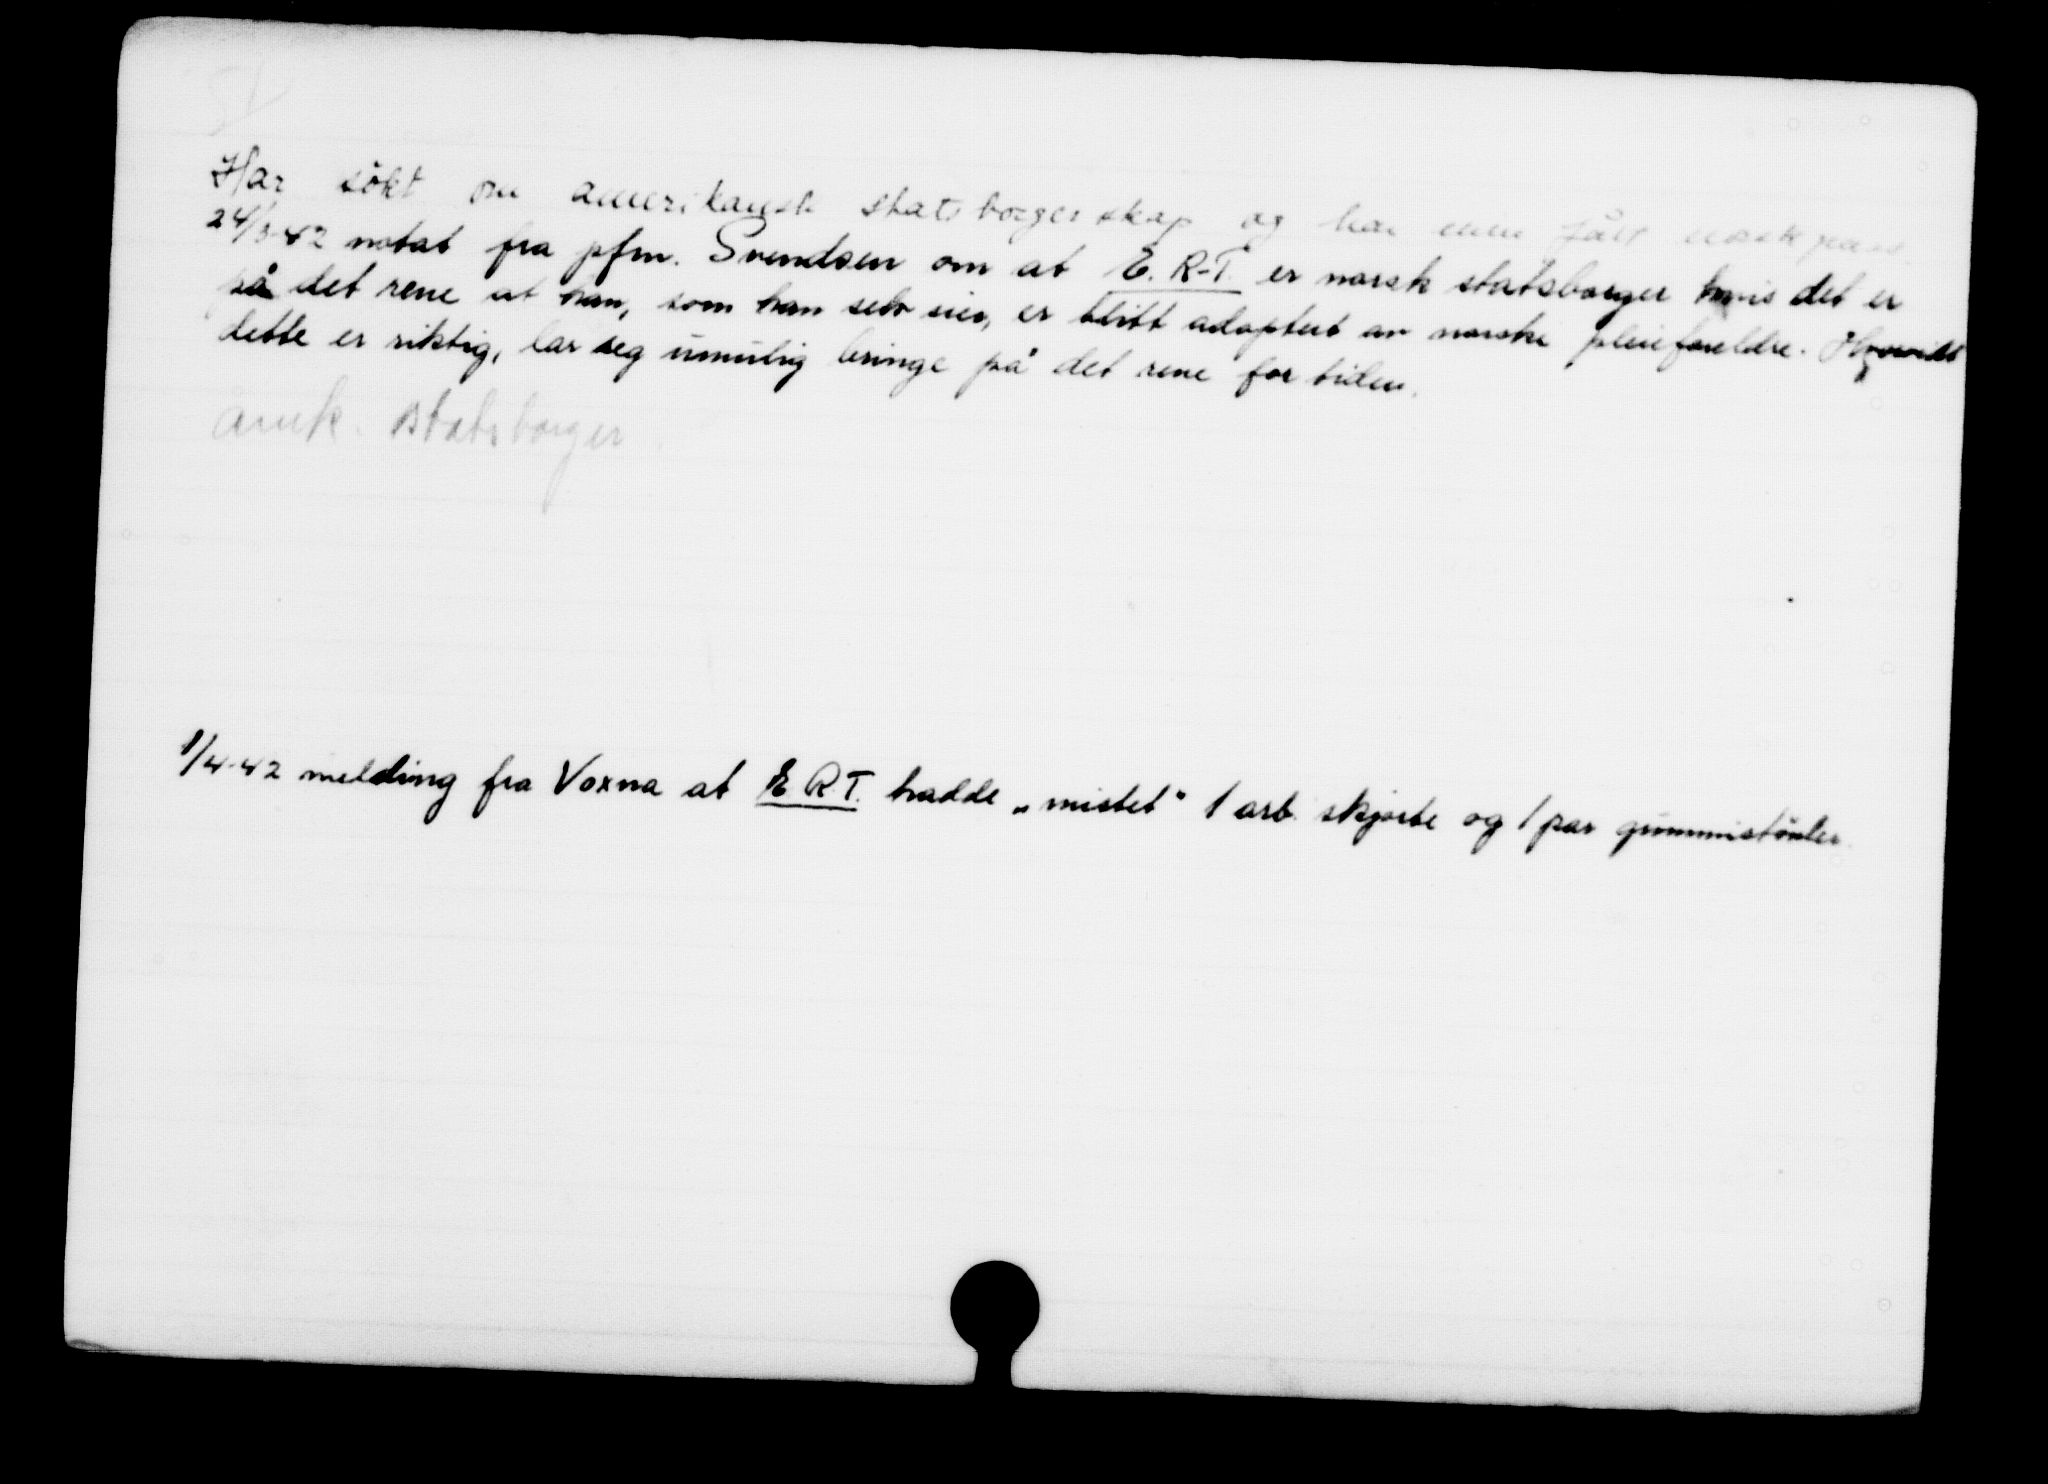 Har søkt om amerikansk statsborgerskap og har nu fått norsk pass.
24/3-42 notat fra pfm. Svendsen om at E. R-T. er norsk statsborger hvis det er
på det rene at han, som han selv sier, er blitt adoptert av norske pleieforeldre. Hvorvidt
dette er riktig, lar seg umulig bringe på det rene for tiden.
amk. statsborger.
1/4-42 melding fra Voxna at E. R. T. hadde „mistet" 1 arb. skjorte og 1 par gummistövler.